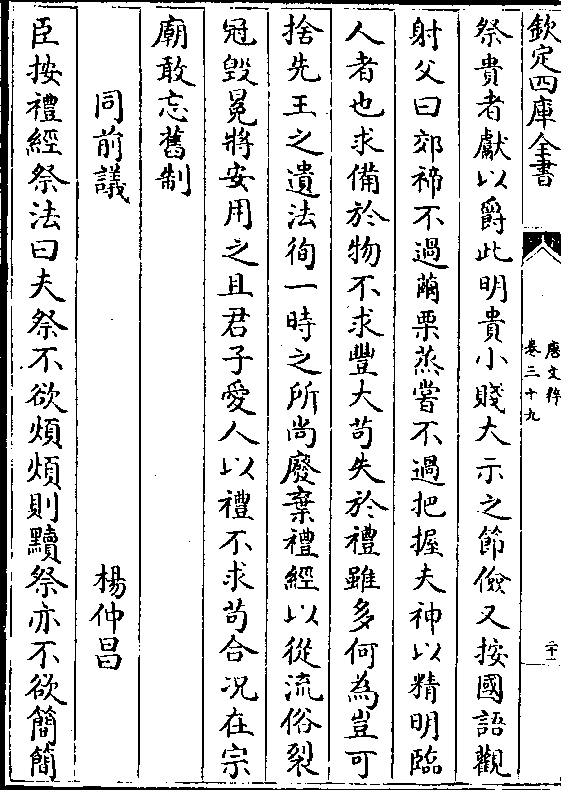 欽定四庫全書
唐文粹
卷三十九
二十一
祭貴者獻以爵此明貴小賤大示之節儉又按國語觀
射父曰郊禘不過繭栗蒸嘗不過把握夫神以精明臨
人者也求備於物不求豐大苟失於禮雖多何為豈可
捨先王之遺法徇一時之所尚廢棄禮經以從流俗裂
冠毀冕將安用之且君子愛人以禮不求苟合况在宗
廟敢忘舊制
同前議 楊仲昌
臣按禮經祭法曰夫祭不欲煩煩則黷祭亦不欲簡簡